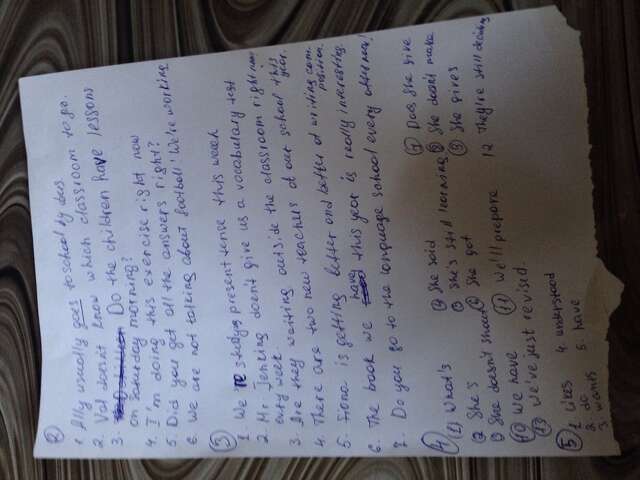 2
1. Ally usually goes to school by bus.
2. Val doesn't know which classroom to go.
3. Do the children have lessons
on Saturday morning?
4. I'm doing this exercise right now
5. Did you get all the answers right?
6. We are not talking about football! We're working
3
1. We 're studying present tense this week
2. Mr. Jenking doesn't give us a vocabulary test
every week.
3. Are they waiting outside the classroom right now
4. There are two new teachers at our school this
year.
5. Fiona is getting better and better at writing com
position.
6. The book we have this year is really interesting.
7. Do you go to the language school every afternoon!
4
(1) What's
2 She's
3 She doesn't shout
4 She said
5 She's still learning
6 She got
7 Does she give
8 She doesn't make
9 She gives
10 We have
11 We'll prepare
12 They're still deciding
13 We've just revised.
5
1. Likes
2. do
3. wants
4. understood
5. have